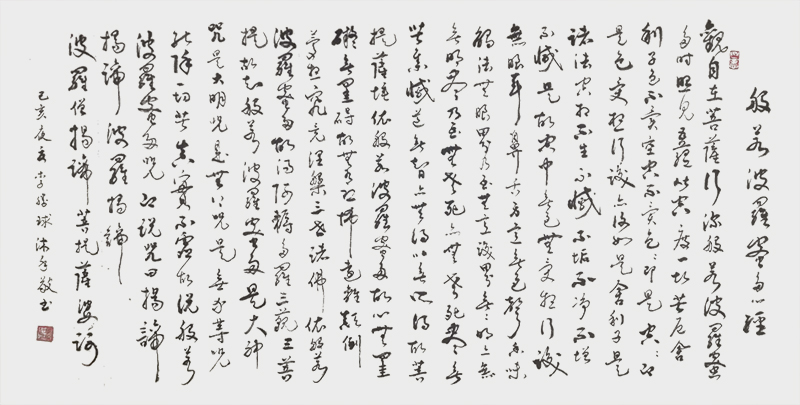 般若波羅蜜多心經
觀自在菩薩行深般若波羅蜜
多时照見五蘊皆空度一切苦厄舍
利子色不異空空不異色色即是空空即
是色受想行識亦復如是舍利子是
諸法空相不生不滅不垢不净不增
不減是故空中無色無受想行識
無眼耳鼻舌身意無色聲香味
觸法無眼界乃至無意識界無無明亦無
無明盡乃至無老死亦無老死盡無
苦集滅道無智亦無得以無所得故菩
提薩埵依般若波羅蜜多故心無罣
礙無罣碍故無有恐怖遠離顛倒
夢想究竟涅槃三世諸佛依般若
波羅蜜多故得阿耨多羅三藐三菩
提故知般若波羅蜜多是大神
咒是大明咒是無上咒是無等等咒
能除一切苦真實不虛故説般若
波羅蜜多咒即説咒曰揭諦
揭諦波羅揭諦
波羅僧揭諦菩提薩婆訶
己亥夏李球沐手敬書